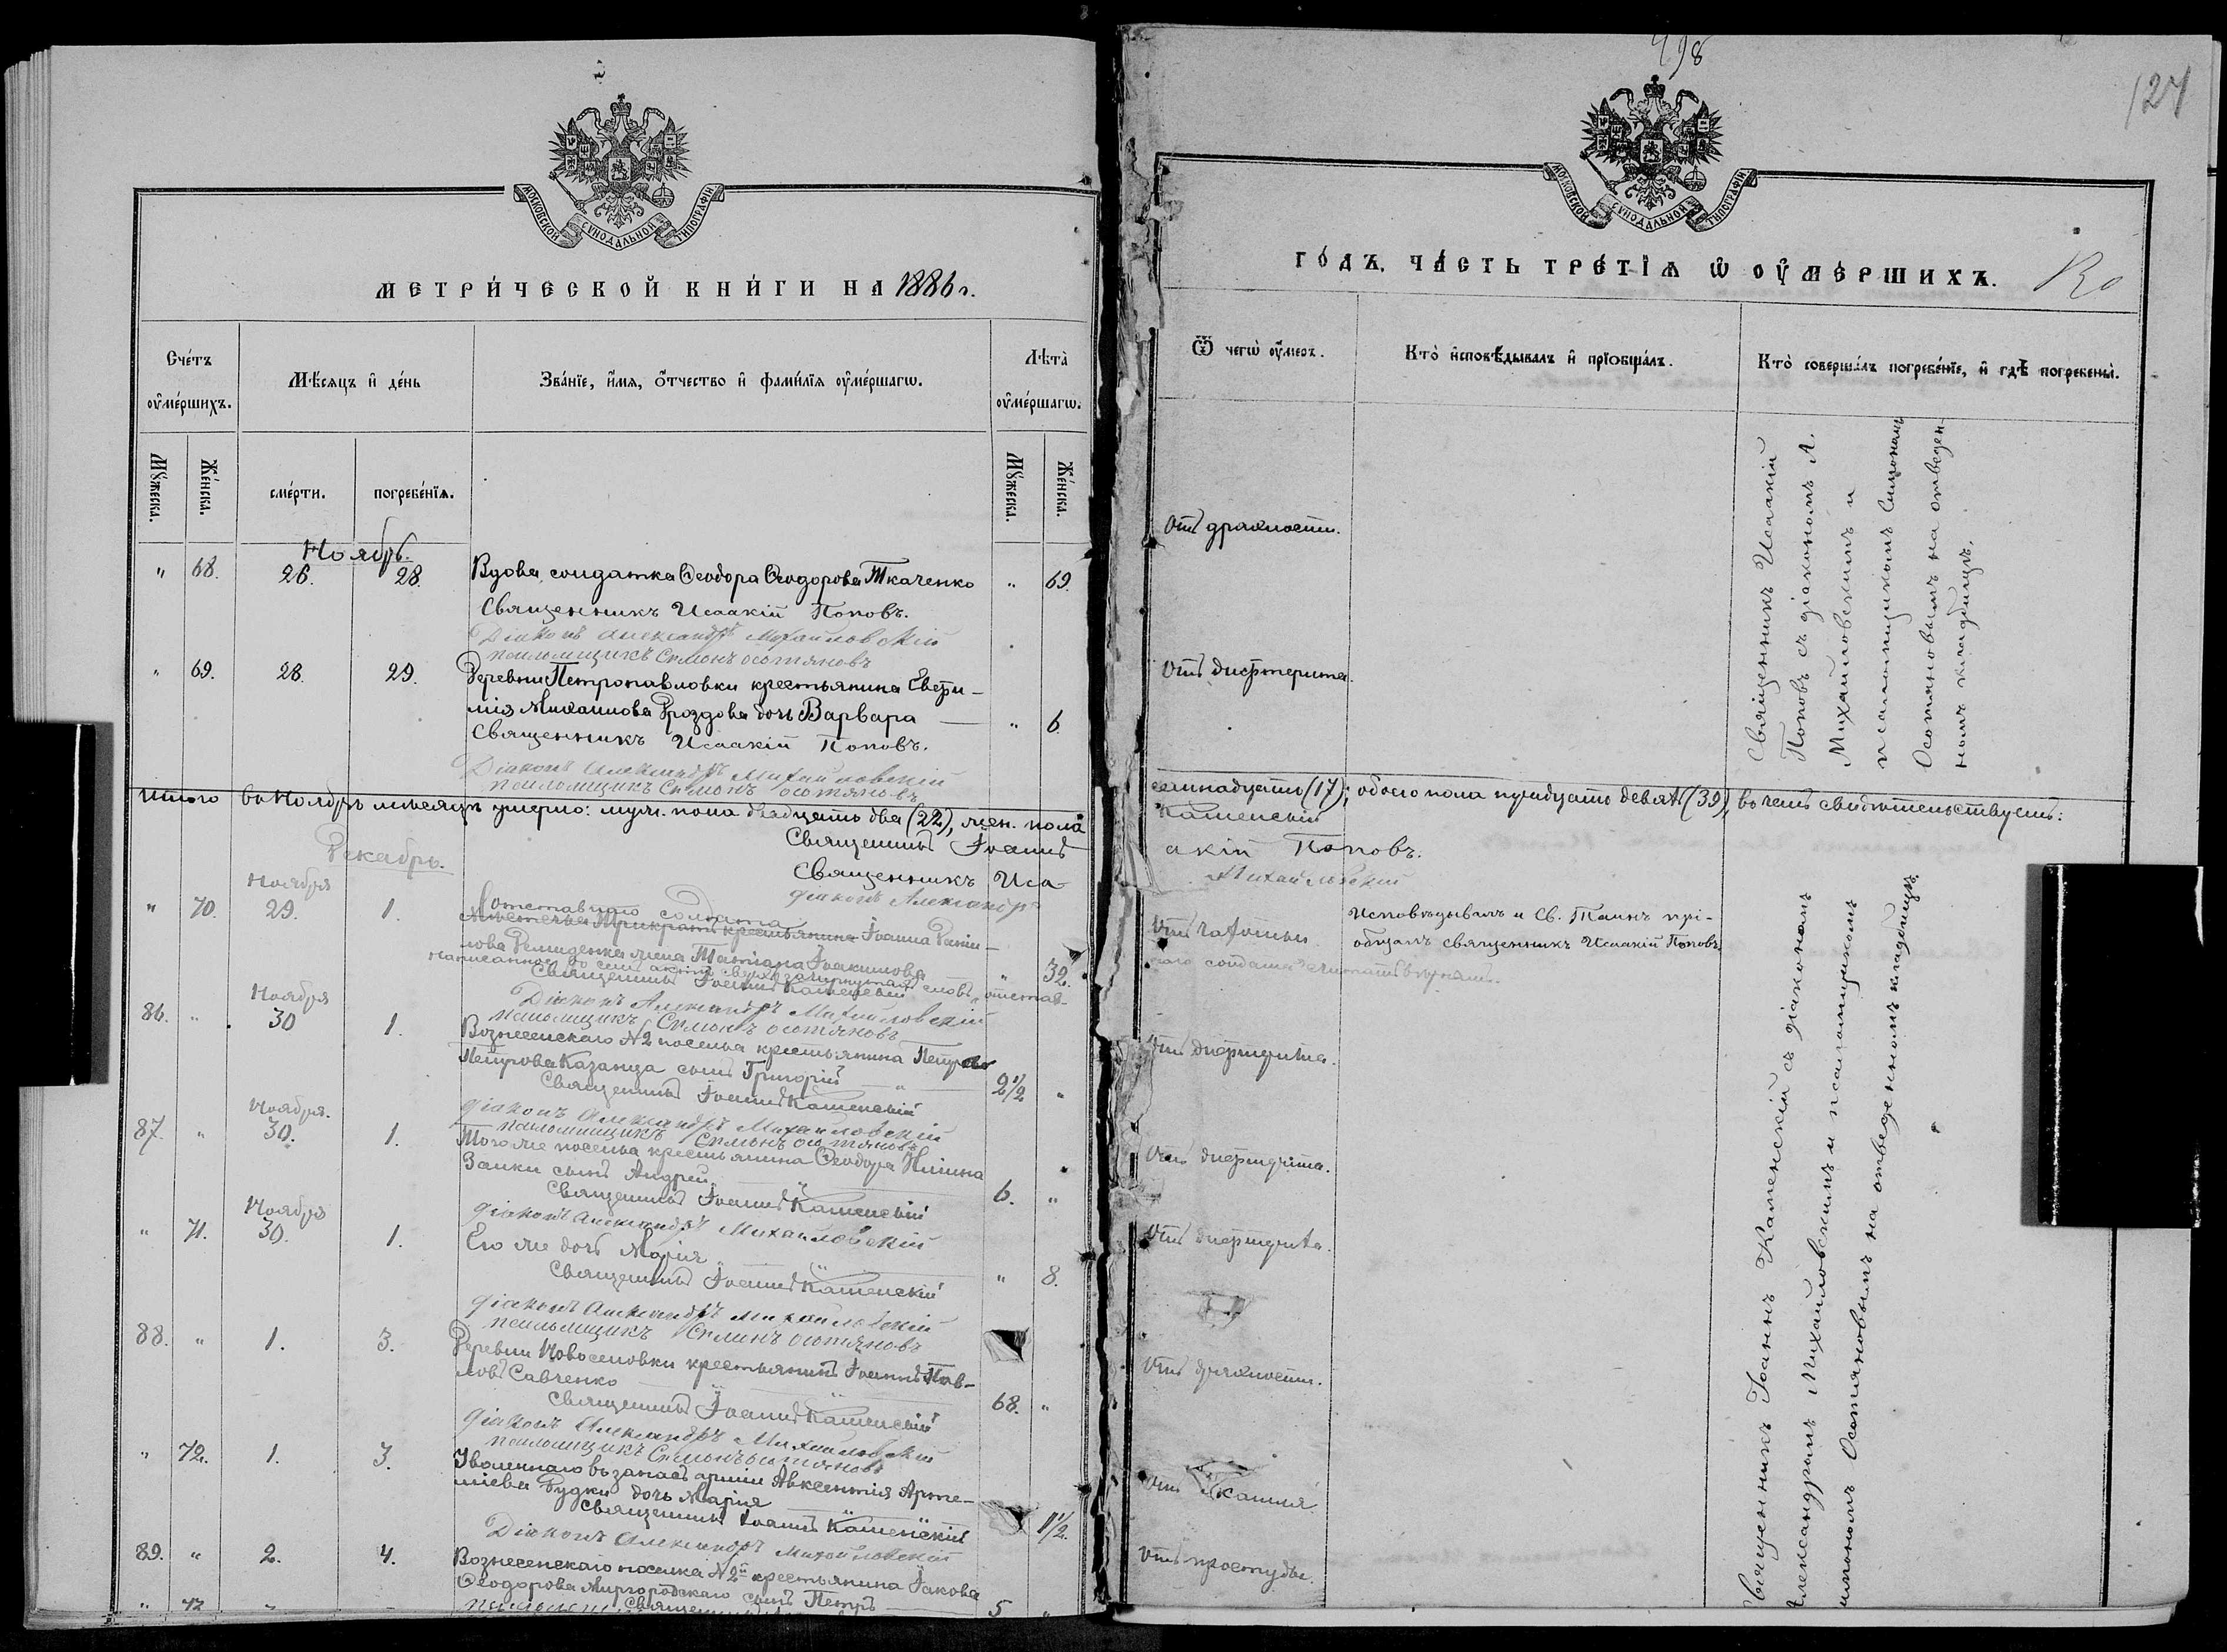 498
124
МОСКОВСКОЙ СѴНОДАЛЬНОЙ ТИПОГРАФІИ
МЕТРИ́ЧЕСКОЙ КНИ́ГИ НА 1886 г.
Сче́тъ оу҆ме́ршихъ.
Мѣ́сяцъ и҆ де́нь
Зва́нїе, и҆́мя, ѻ҆́тчество и҆ фами́лїя оу҆ме́ршагѡ.
Лѣта̀ оу҆ме́ршагѡ.
Мꙋ́жеска.
Же́нска.
сме́рти.
погребе́нїя.
Мꙋ́жеска.
Же́нска.
Ноябрь.
" 68. 26. 28. Вдова солдатка Ѳеодора Ѳеодорова Ткаченко " 69.
Священникъ Исаакій Поповъ.
Діаконъ Александръ Михайловскій
псаломщикъ Симонъ Осотяновъ
" 69. 28. 29. Деревни Петропавловки крестьянина Евѳи-
мія Михаилова Дроздова дочь Варвара " 6.
Священникъ Исаакій Поповъ.
Діаконъ Александръ Михайловскій
псаломщикъ Симонъ Осотяновъ
Итого въ Ноябрѣ мѣсяцѣ умерло: муж. пола двадцать два (22), жен. пола
Священникъ Іоаннъ
Священникъ Иса-
діаконъ Александръ
Декабрь.
Ноября
" 70. 29. 1. отставнаго солдата
Мѣстечка Трикратъ крестьянина Іоанна Дани-
лова Демиденка жена Татіана Іоакимова " 32.
Священникъ Іоаннъ Каменскій
Діаконъ Александръ Михайловскій
псаломщикъ Симонъ Осотяновъ
Ноября
86. " 30 1. Вознесенскаго №2 поселка крестьянина Петра
Петрова Казанца сынъ Григорій 2½ "
Священникъ Іоаннъ Каменскій
діаконъ Александръ Михайловскій
псаломщикъ Симонъ Осотяновъ
Ноября.
87. " 30. 1. Того же поселка крестьянина Ѳеодора Иліина
Заики сынъ Андрей 6. "
Священникъ Іоаннъ Каменскій
діаконъ Александръ Михайловскій
Ноября
" 71. 30. 1. Его же дочь Марія " 8.
Священникъ Іоаннъ Каменскій
діаконъ Александръ Михайловскій
псаломщикъ Симонъ Осотяновъ
88. " 1. 3. Деревни Новоселовки крестьянинъ Іоаннъ Пав-
ловъ Савченко 68. "
Священникъ Іоаннъ Каменскій
діаконъ Александръ Михайловскій
псаломщикъ Симонъ Осотяновъ
" 72. 1. 3. Уволеннаго въ запасъ арміи Авксентія Арте-
міева Будки дочь Марія 1½.
Священникъ Іоаннъ Каменскій
Діаконъ Александръ Михайловскій
89. " 2. 4. Вознесенскаго поселка №2й крестьянина Іакова
Ѳеодорова Миргородскаго сынъ Петръ 5 "
МОСКОВСКОЙ СѴНОДАЛЬНОЙ ТИПОГРАФІИ
ГО́ДЪ. ЧА́СТЬ ТРЕ́ТІѦ Ѡ ОУ҆МЕ́РШИХЪ.
Ѿ чегѡ̀ оу҆́меръ.
Кто̀ и҆сповѣ́дывалъ и҆ прїѡбща́лъ.
Кто̀ соверша́лъ погребе́нїе, и҆ гдѣ̀ погребены̀.
Отъ дряхлости.
Отъ дифтерита.
Священникъ Исаакій
Поповъ съ діакономъ А.
Михайловскимъ и
псаломщикомъ Симономъ
Осотяновымъ на отведен-
номъ кладбищѣ.
семнадцать (17); обоего пола тридцать девять (39), въ чемъ свидѣтельствуемъ:
Каменскій
акій Поповъ.
Михайловскій
Отъ чахотки.
Исповѣдывалъ и Св. Таинъ прі-
общалъ священникъ Исаакій Поповъ.
Отъ дифтерита.
Отъ дифтерита.
Отъ дифтерита.
Отъ дряхлости.
Отъ кашля.
Отъ простуды.
Священникъ Іоаннъ Каменскій съ діакономъ
Александромъ Михайловскимъ и псаломщикомъ
Симономъ Осотяновымъ на отведенномъ кладбищѣ.